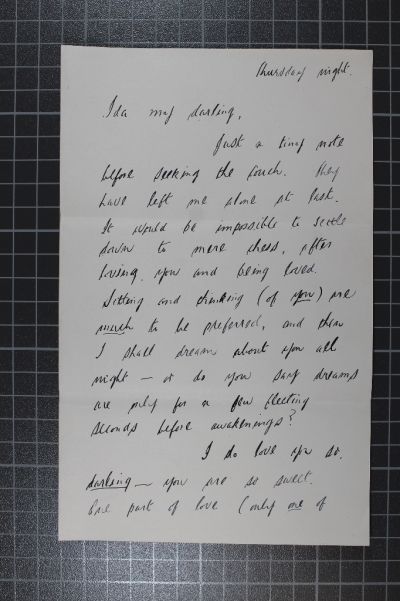 Thursday night.
Ida my darling,
Just a tiny note
before seeking the couch. They
have left me alone at last.
It would be impossible to settle
down to mere chess, after
loving you and being loved.
Sitting and thinking (of you) are
much to be preferred, and then
I shall dream about you all
night – or do you say dreams
are only for a few fleeting
seconds before awakenings?
I do love you so,
darling – you are so sweet.
One part of love (only one of